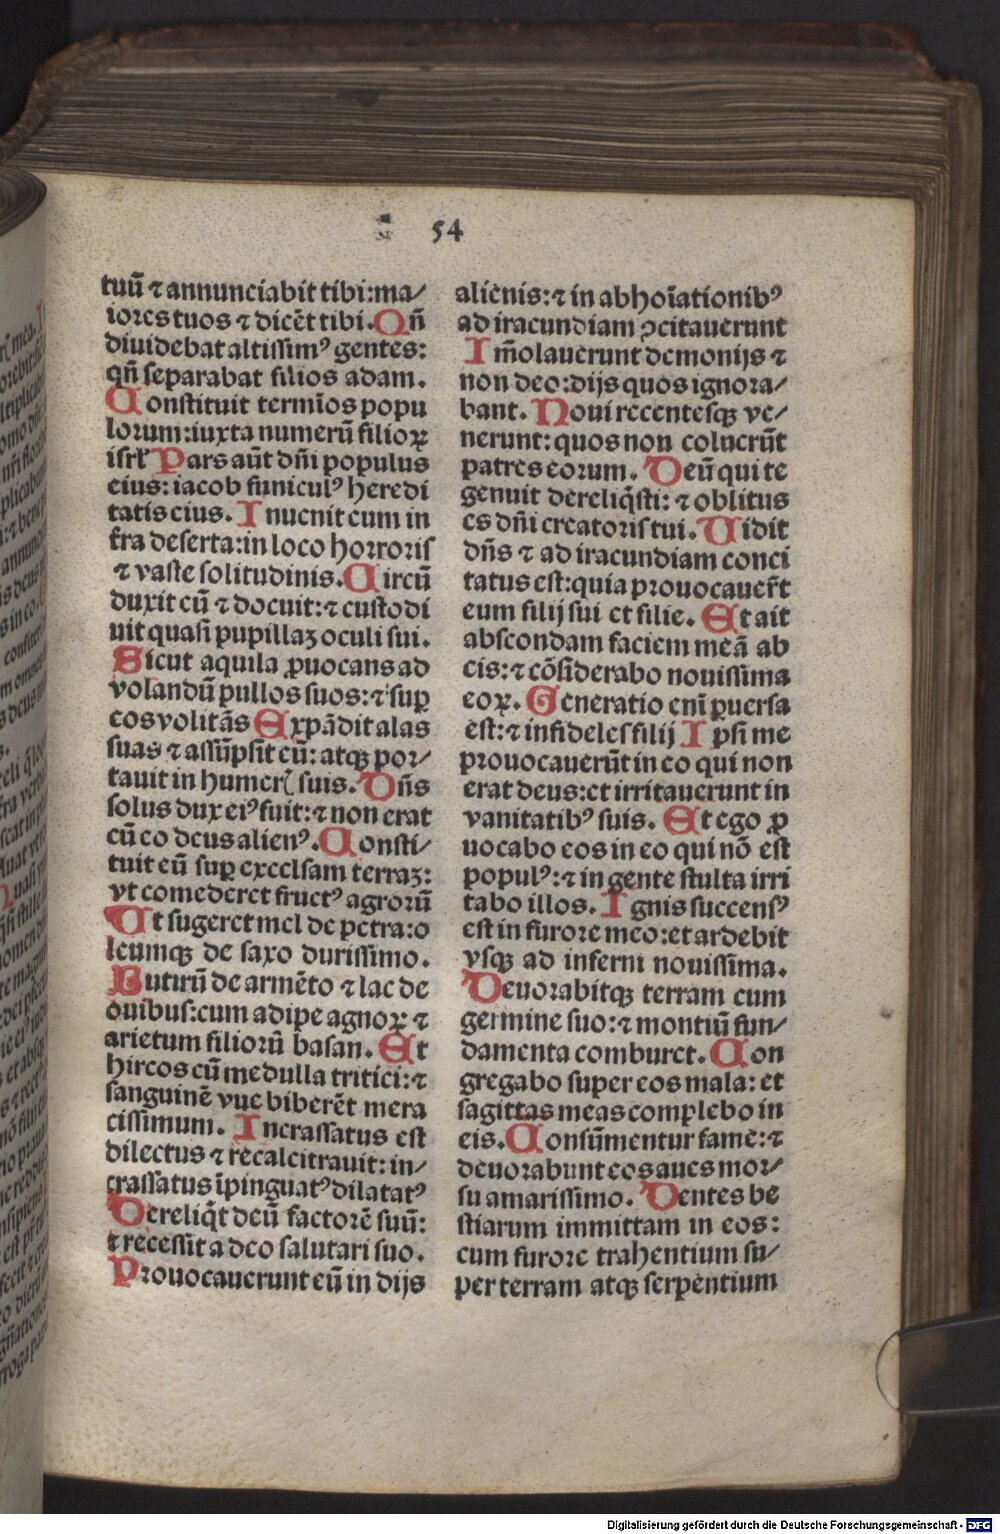 54
tuū ⁊ annunciabit tibi:ma/
iores tuos ⁊ dicēt tibi. Qn̄
diuidebat altissimꝰ gentes:
qn̄ separabat filios adam.
Constituit termīos popu
lorum:iuxta numerū filioꝝ
isrl̓ Pars aūt dn̄i populus
eius: iacob funiculꝰ heredi
tatis eius. Inuenit eum in
t̄ra deserta:in loco horroris
⁊ vaste solitudinis. Circū
duxit eū ⁊ docuit:⁊ custodi
uit quasi pupillaꝫ oculi sui.
Sicut aquila ꝓuocans ad
volandū pullos suos:⁊ suꝑ
eos volitās Expādit alas
suas ⁊ assūpsit eū: atqꝫ por/
tauit in humerꝭ suis. Dn̄s
solus dux eiꝰ fuit:⁊ non erat
cū eo deus alienꝰ. Consti/
tuit eū suꝑ excelsam terraꝫ:
vt comederet fructꝰ agrorū
Ut sugeret mel de petra:o
leumqꝫ de saxo durissimo.
Butirū de armēto ⁊ lac de
ouibus:cum adipe agnoꝝ ⁊
arietum filiorū basan. Et
hircos cū medulla tritici:⁊
sanguinē vue biberēt mera
cissimum. Incrassatus est
dilectus ⁊ recalcitrauit: in/
crassatus īpinguatꝰ dilatatꝰ
Dereliq̄t deū factorē suū:
⁊ recessit a deo salutari suo.
Prouocauerunt eū in dijs
alienis:⁊ in abhoīationibꝰ
ad iracundiam ꝯcitauerunt
Im̄olauerunt demonijs ⁊
non deo:dijs quos ignora/
bant. Noui recentesqꝫ ve/
nerunt: quos non coluerūt
patres eorum. Deū qui te
genuit dereliq̄sti: ⁊ oblitus
es dn̄i creatoris tui. Uidit
dn̄s ⁊ ad iracundiam conci
tatus est:quia prouocauer̄t
eum filij sui et filie. Et ait
abscondam faciem meā ab
eis:⁊ cōsiderabo nouissima
eoꝝ. Generatio enī ꝑuersa
est:⁊ infideles filij Ipsi me
prouocauerūt in eo qui non
erat deus:et irritauerunt in
vanitatibꝰ suis. Et ego ꝓ
uocabo eos in eo qui nō est
populꝰ:⁊ in gente stulta irri
tabo illos. Ignis succensꝰ
est in furore meo:et ardebit
vsqꝫ ad inferni nouissima.
Deuorabitqꝫ terram cum
germine suo:⁊ montiū fun/
damenta comburet. Con
gregabo super eos mala: et
sagittas meas complebo in
eis. Consūmentur fame:⁊
deuorabunt eos aues mor/
su amarissimo. Dentes be
stiarum immittam in eos:
cum furore trahentium su/
per terram atqꝫ serpentium
Digitalisierung gefördert durch die Deutsche Forschungsgemeinschaft - DFG